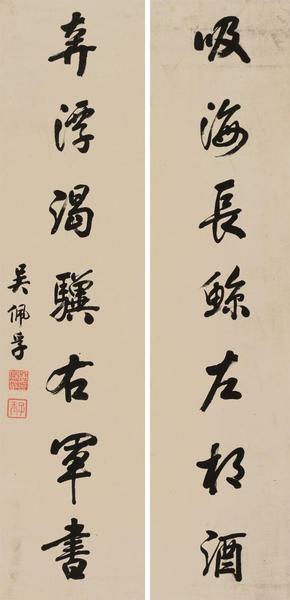 吸海長鯨左相酒
奔潭渴驥右軍書
吳佩孚